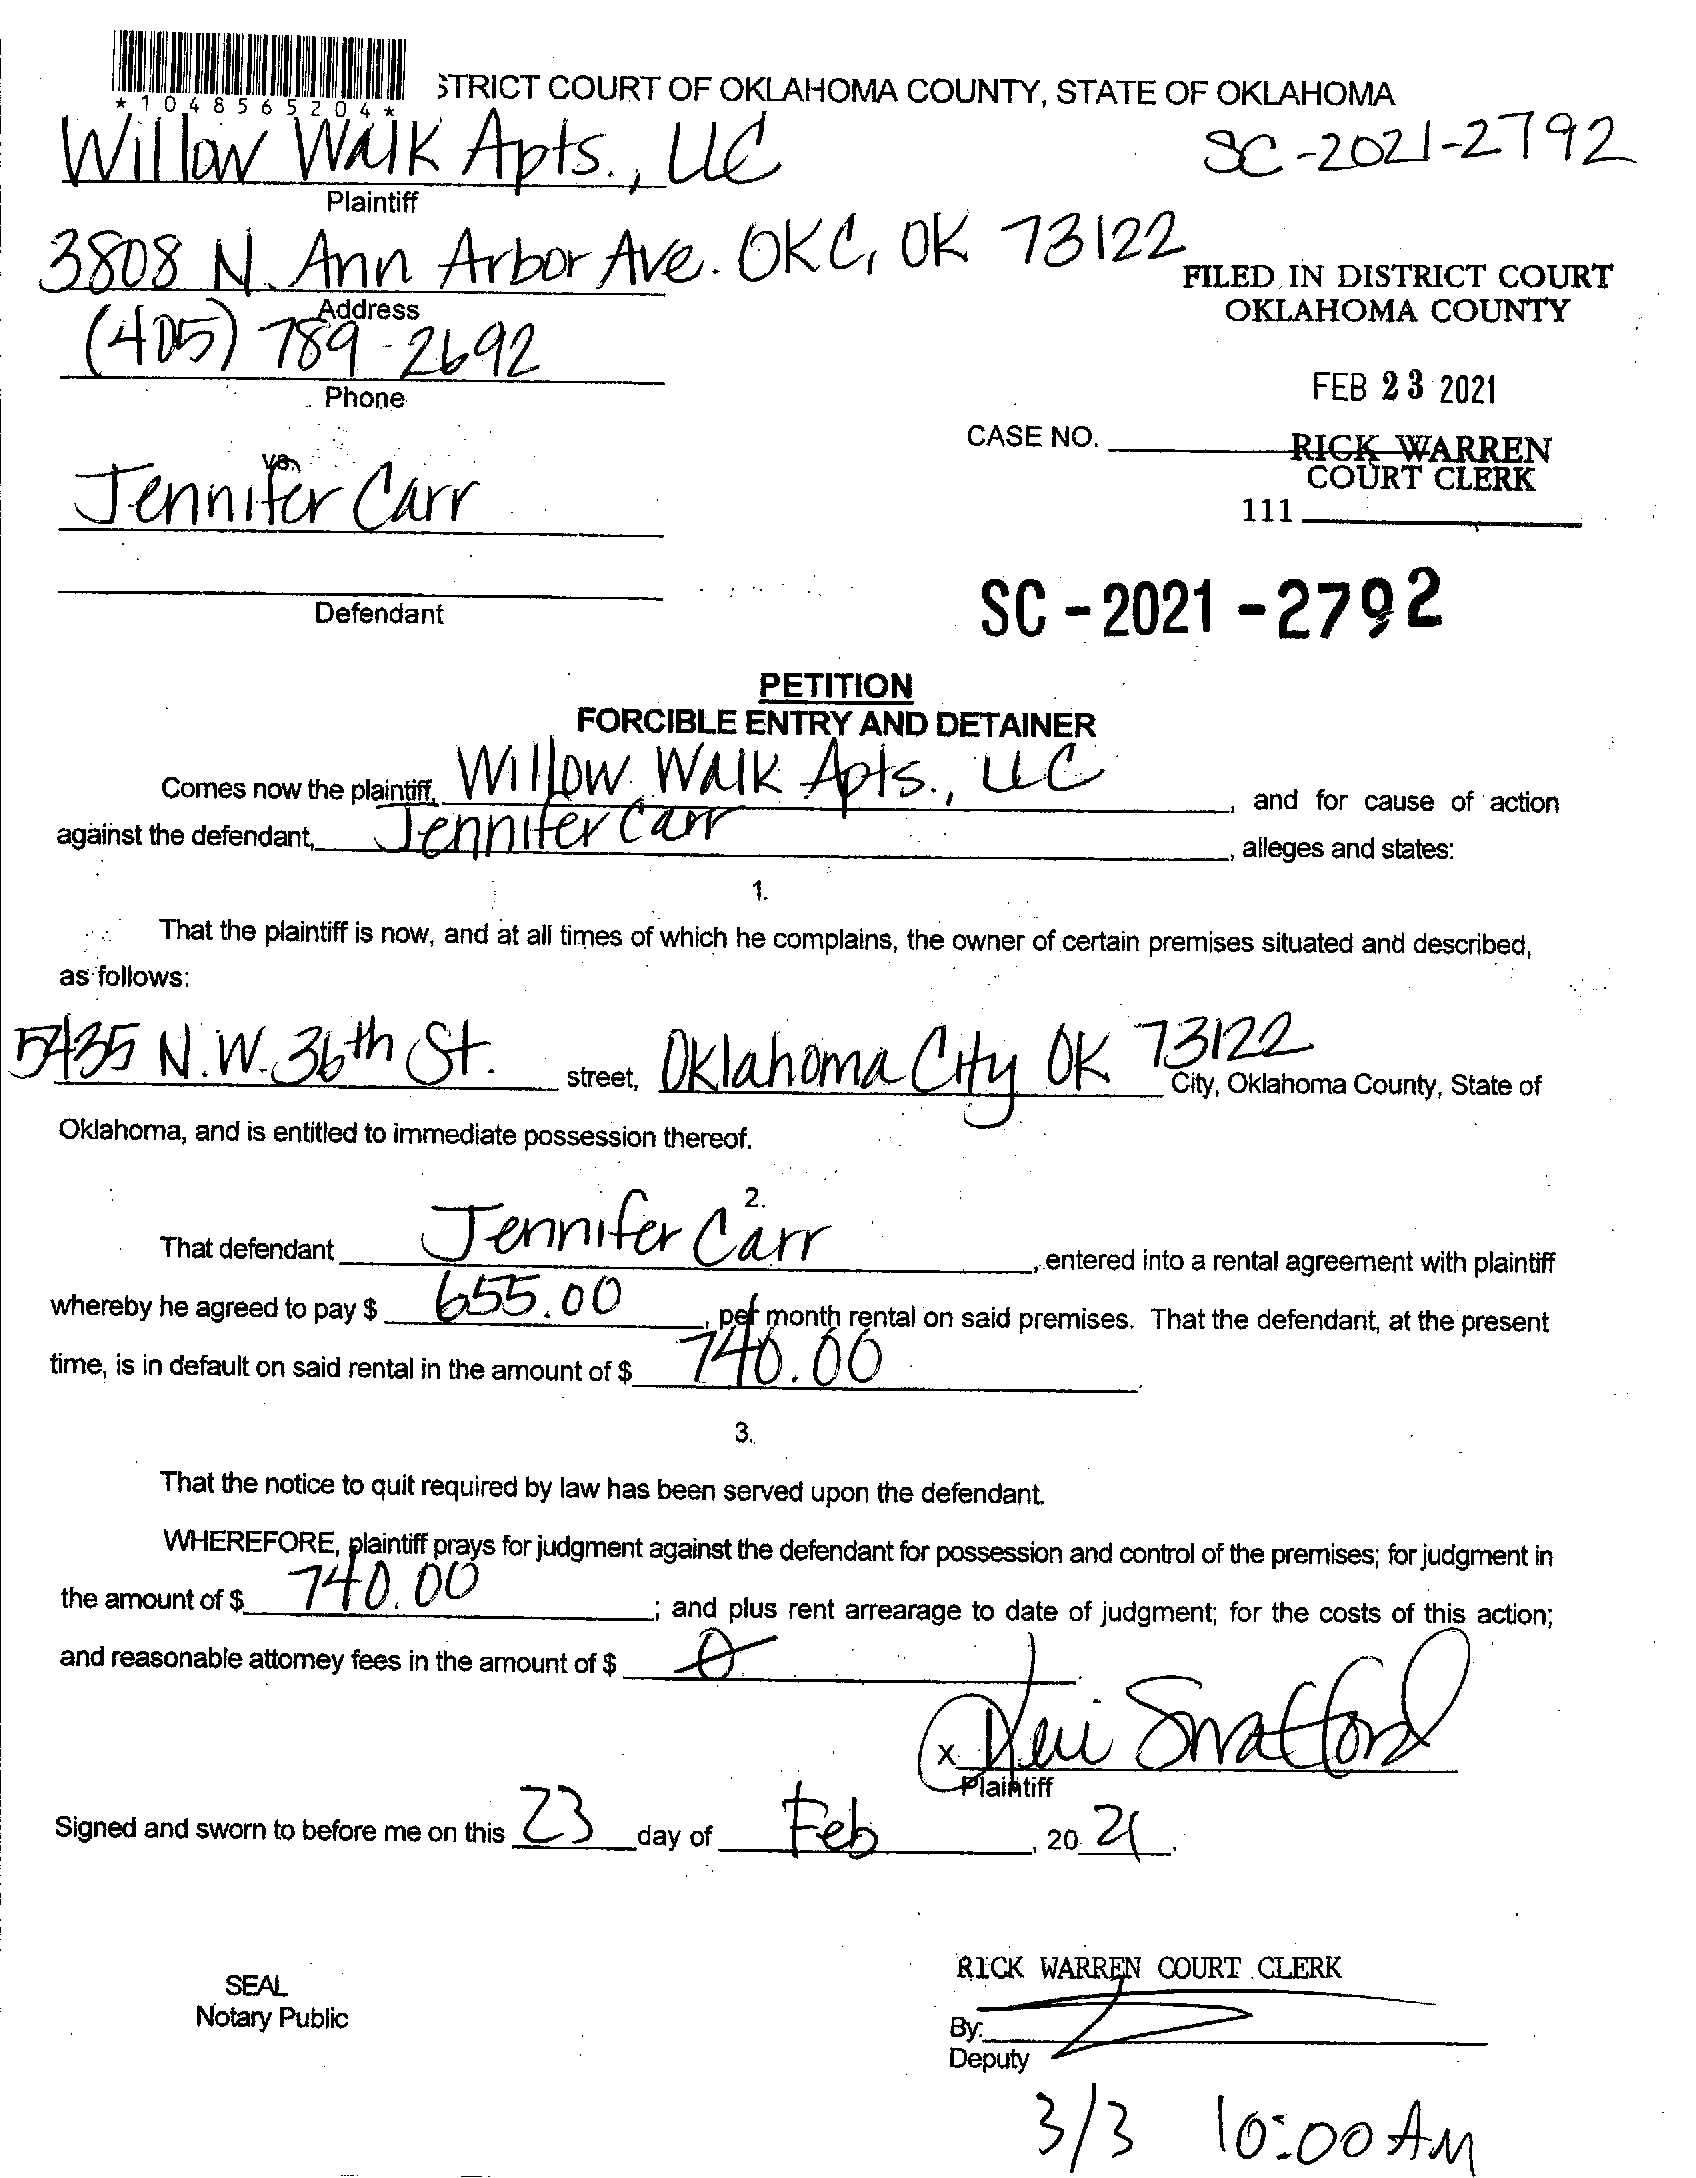 *1048565204*
STRICT COURT OF OKLAHOMA COUNTY, STATE OF OKLAHOMA
Willow Walk Apts., LLC
SC-2021-2792
Plaintiff
3808 N. Ann Arbor Ave. OKC, OK 73122
FILED IN DISTRICT COURT
OKLAHOMA COUNTY
Address
(405) 789-2692
Phone
FEB 23 2021
CASE NO.
RICK WARREN
COURT CLERK
111
vs.
Jennifer Carr
Defendant
SC - 2021 - 2792
PETITION
FORCIBLE ENTRY AND DETAINER
Comes now the plaintiff, Willow Walk Apts., LLC, and for cause of action
against the defendant, Jennifer Carr, alleges and states:
1.
That the plaintiff is now, and at all times of which he complains, the owner of certain premises situated and described,
as follows:
5435 N.W. 36th St. street, Oklahoma City OK 73122 City, Oklahoma County, State of
Oklahoma, and is entitled to immediate possession thereof.
2.
That defendant Jennifer Carr, entered into a rental agreement with plaintiff
whereby he agreed to pay $ 655.00, per month rental on said premises. That the defendant, at the present
time, is in default on said rental in the amount of $ 740.00
3.
That the notice to quit required by law has been served upon the defendant.
WHEREFORE, plaintiff prays for judgment against the defendant for possession and control of the premises; for judgment in
the amount of $ 740.00; and plus rent arrearage to date of judgment; for the costs of this action;
and reasonable attorney fees in the amount of $ 0
x
Plaintiff
Signed and sworn to before me on this 23 day of Feb, 20 21.
SEAL
Notary Public
RICK WARREN COURT CLERK
By:
Deputy
3/3 10:00 AM